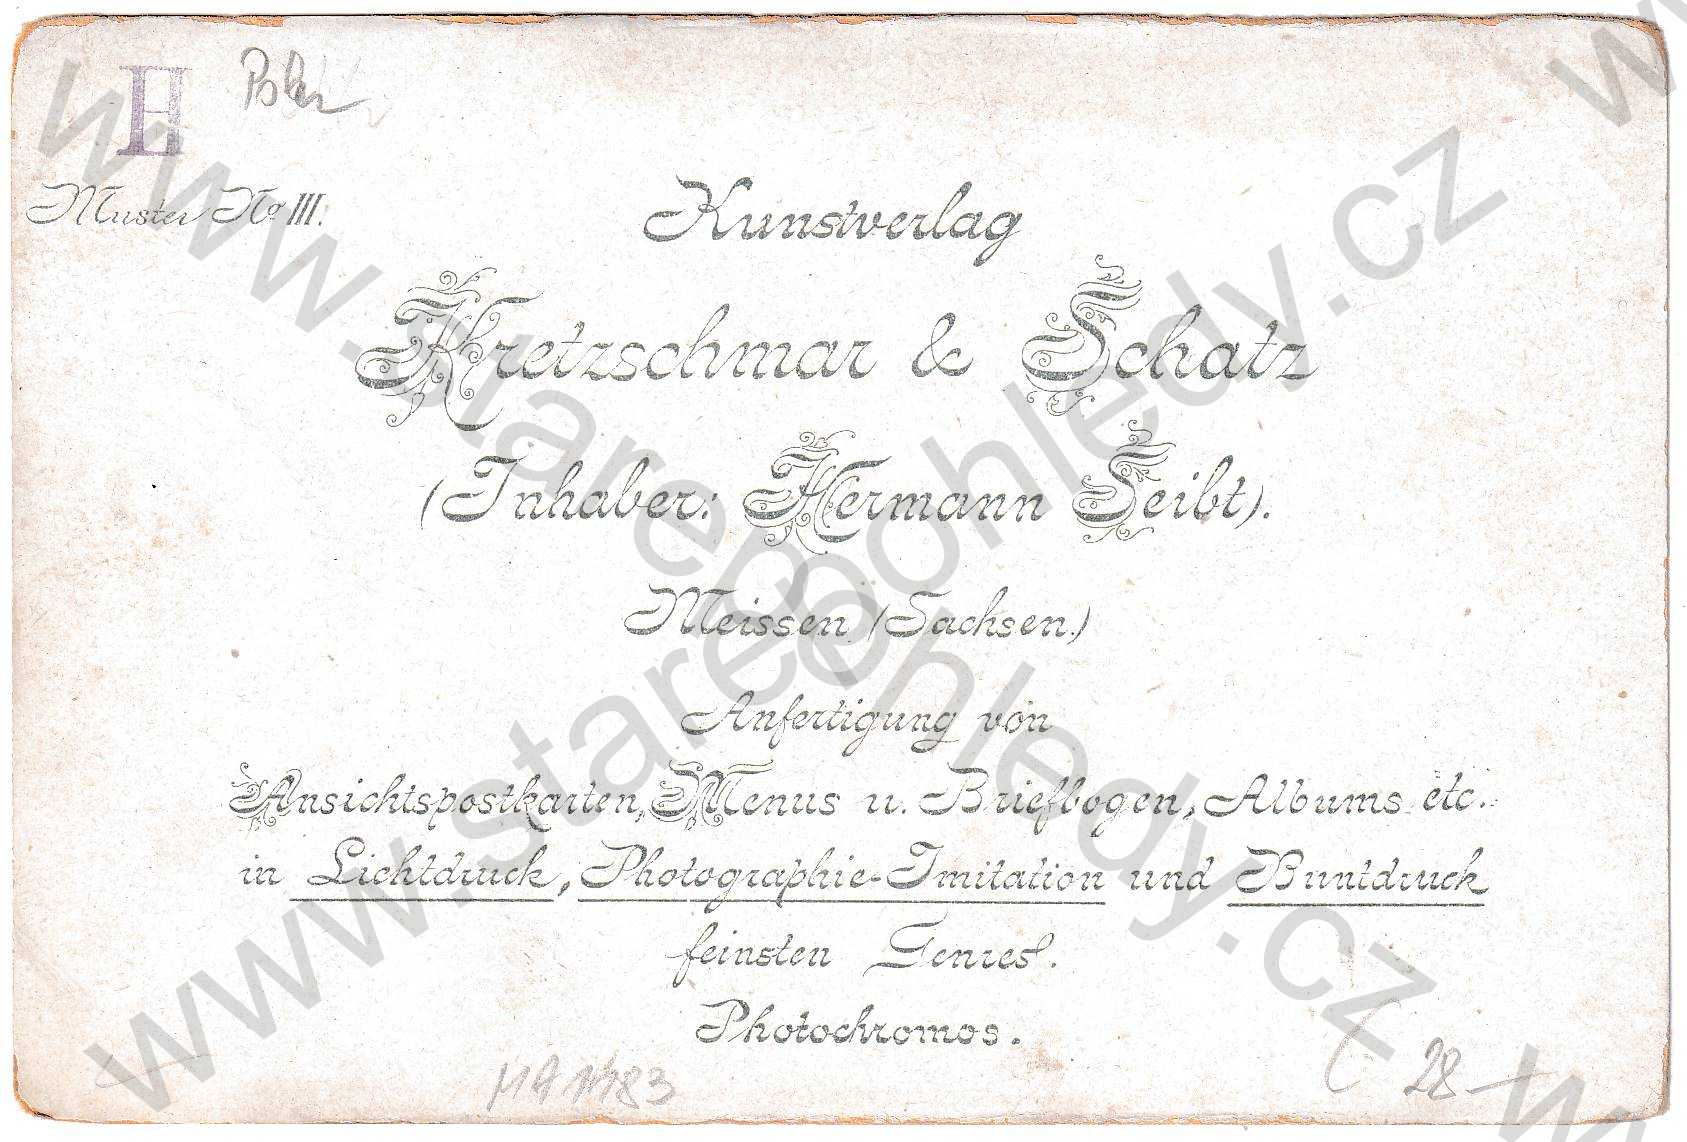 H
Muster No III.
Kunstverlag
Kretzschmar & Schatz
(Inhaber: Hermann Seibt).
Meissen (Sachsen.)
Anfertigung von
Ansichtspostkarten, Menus u. Briefbogen, Albums etc.
in Lichtdruck, Photographie-Imitation und Buntdruck
feinsten Genres.
Photochromos.
28-
www.starepohledy.cz
www.starepohledy.cz